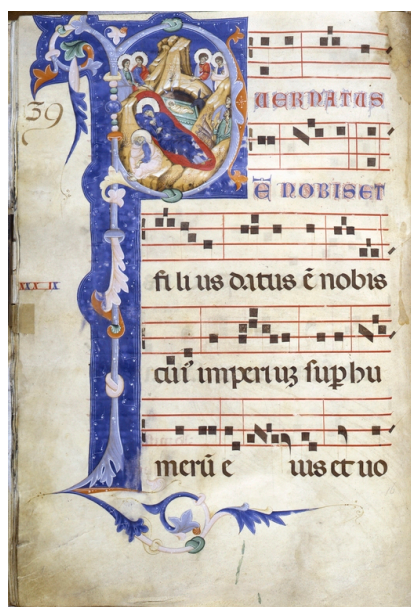 39
PUERNATUS
Ē NOBISET
fi li us datus ē nobis
xxx ix
cui᾽ imperiuꝫ suꝑ hu
merū e ius et uo